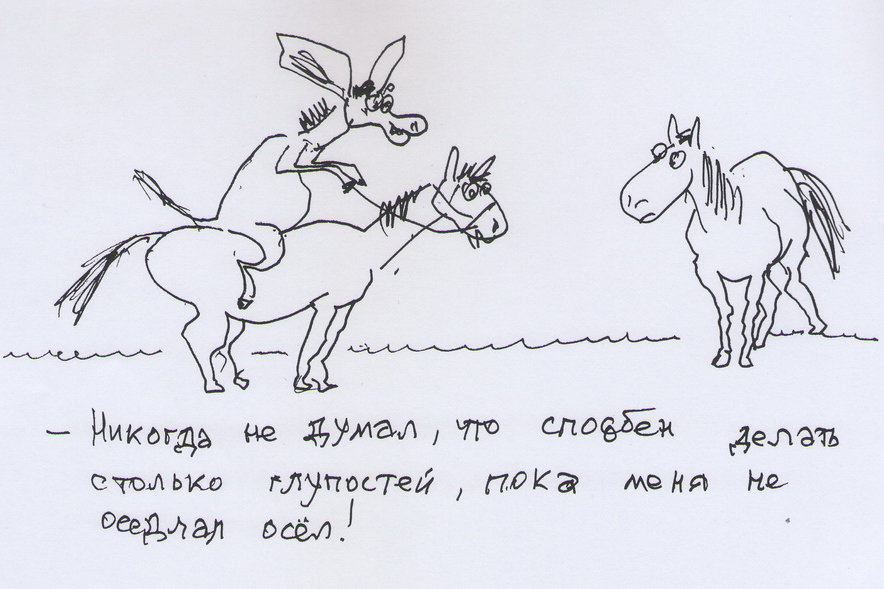 — Никогда не думал, что способен делать
столько глупостей, пока меня не
оседлал осёл!